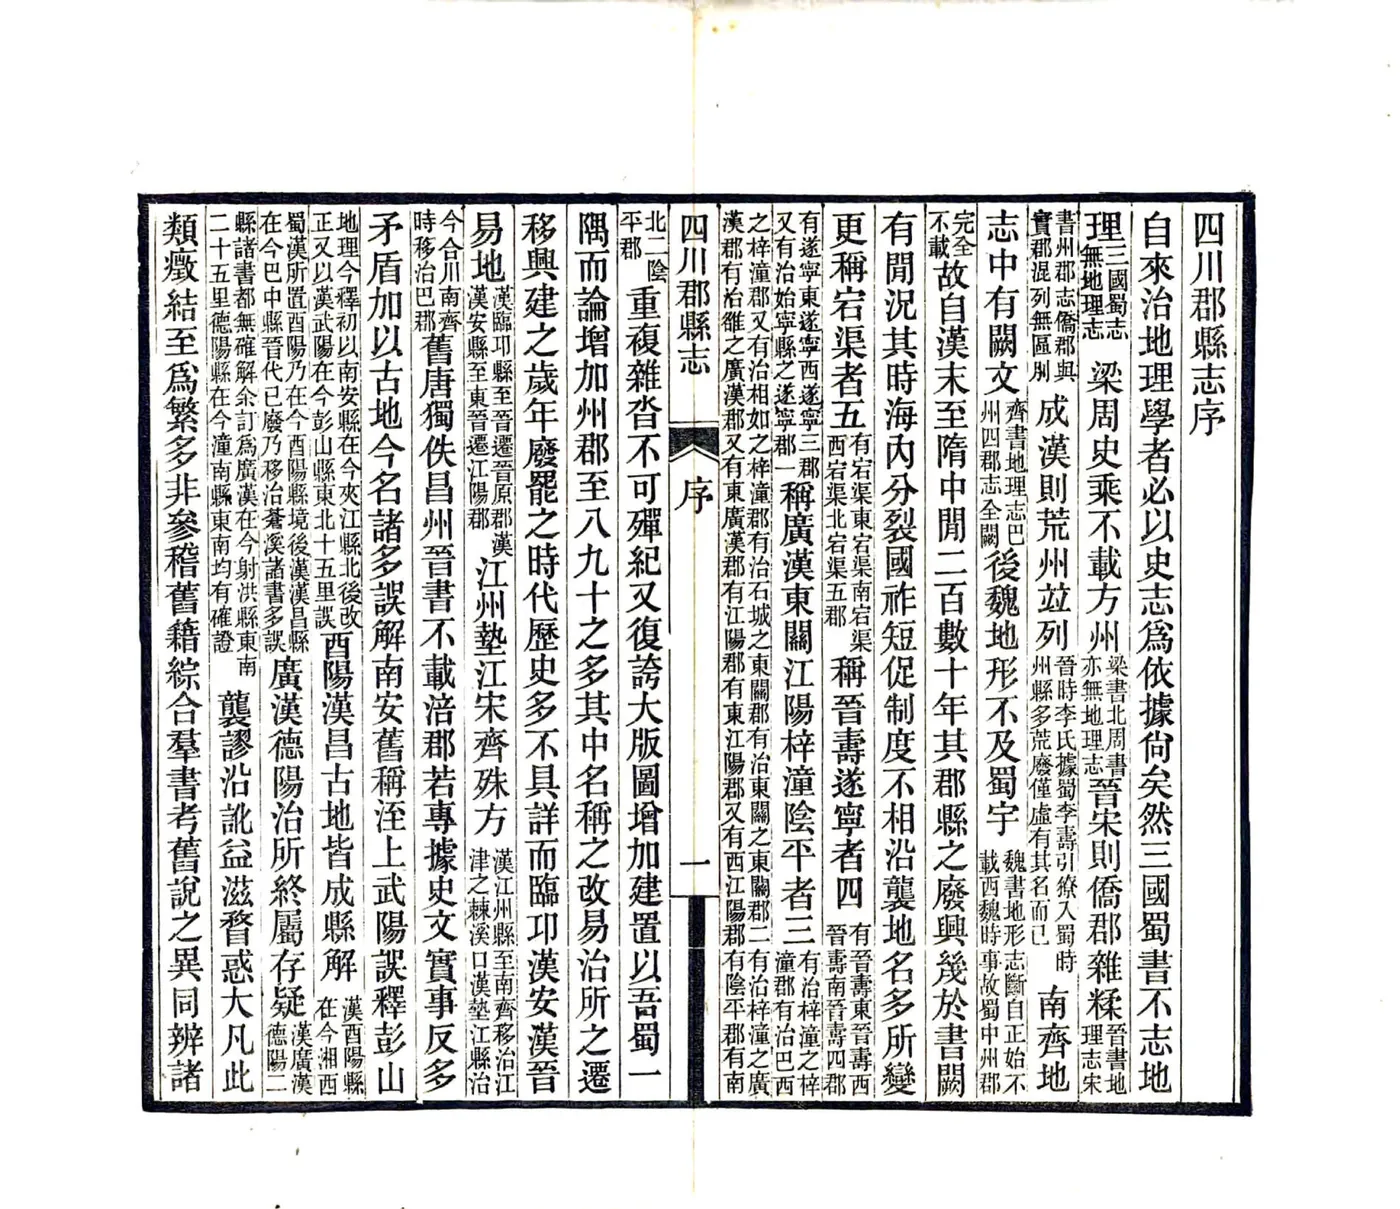 四川郡縣志序
自來治地理學者必以史志爲依據尙矣然三國蜀書不志地
理三國蜀志無地理志梁周史乘不載方州梁書北周書亦無地理志晉宋則僑郡雜糅晉書地理志宋
書州郡志僑郡與實郡混列無區別成漢則荒州竝列晉時李氏據蜀李壽引獠入蜀時州縣多荒廢僅虛有其名而已南齊地
志中有闕文齊書地理志巴州四郡志全闕後魏地形不及蜀宇魏書地形志斷自正始不載西魏時事故蜀中州郡
完全不載故自漢末至隋中閒二百數十年其郡縣之廢興幾於書闕
有閒況其時海內分裂國祚短促制度不相沿襲地名多所變
更稱宕渠者五有宕渠東宕渠南宕渠西宕渠北宕渠五郡稱晉壽遂寧者四有晉壽東晉壽西晉壽南晉壽四郡
有遂寧東遂寧西遂寧三郡又有治始寧縣之遂寧郡一稱廣漢東關江陽梓潼陰平者三有治梓潼之梓潼郡有治巴西
之梓潼郡又有治相如之梓潼郡有治石城之東關郡有治東關之東關郡二有治梓潼之廣漢郡有治雒之廣漢郡又有東廣漢郡有江陽郡有東江陽郡又有西江陽郡有陰平郡有南
四川郡縣志
序
一
北二陰平郡重複雜沓不可殫紀又復誇大版圖增加建置以吾蜀一
隅而論增加州郡至八九十之多其中名稱之改易治所之遷
移興建之歲年廢罷之時代歷史多不具詳而臨邛漢安漢晉
易地漢臨邛縣至晉遷晉原郡漢漢安縣至東晉遷江陽郡江州墊江宋齊殊方漢江州縣至南齊移治江津之棘溪口漢墊江縣治
今合川南齊時移治巴郡舊唐獨佚昌州晉書不載涪郡若專據史文實事反多
矛盾加以古地今名諸多誤解南安舊稱洷上武陽誤釋彭山
地理今釋初以南安縣在今夾江縣北後改正又以漢武陽在今彭山縣東北十五里誤酉陽漢昌古地皆成縣解漢酉陽縣在今湘西
蜀漢所置酉陽乃在今酉陽縣境後漢漢昌縣在今巴中縣晉代已廢乃移治蒼溪諸書多誤廣漢德陽治所終屬存疑漢廣漢德陽二
縣諸書都無確解余訂爲廣漢在今射洪縣東南二十五里德陽縣在今潼南縣東南均有確證襲謬沿訛益滋瞀惑大凡此
類癥結至爲繁多非參稽舊籍綜合羣書考舊說之異同辨諸